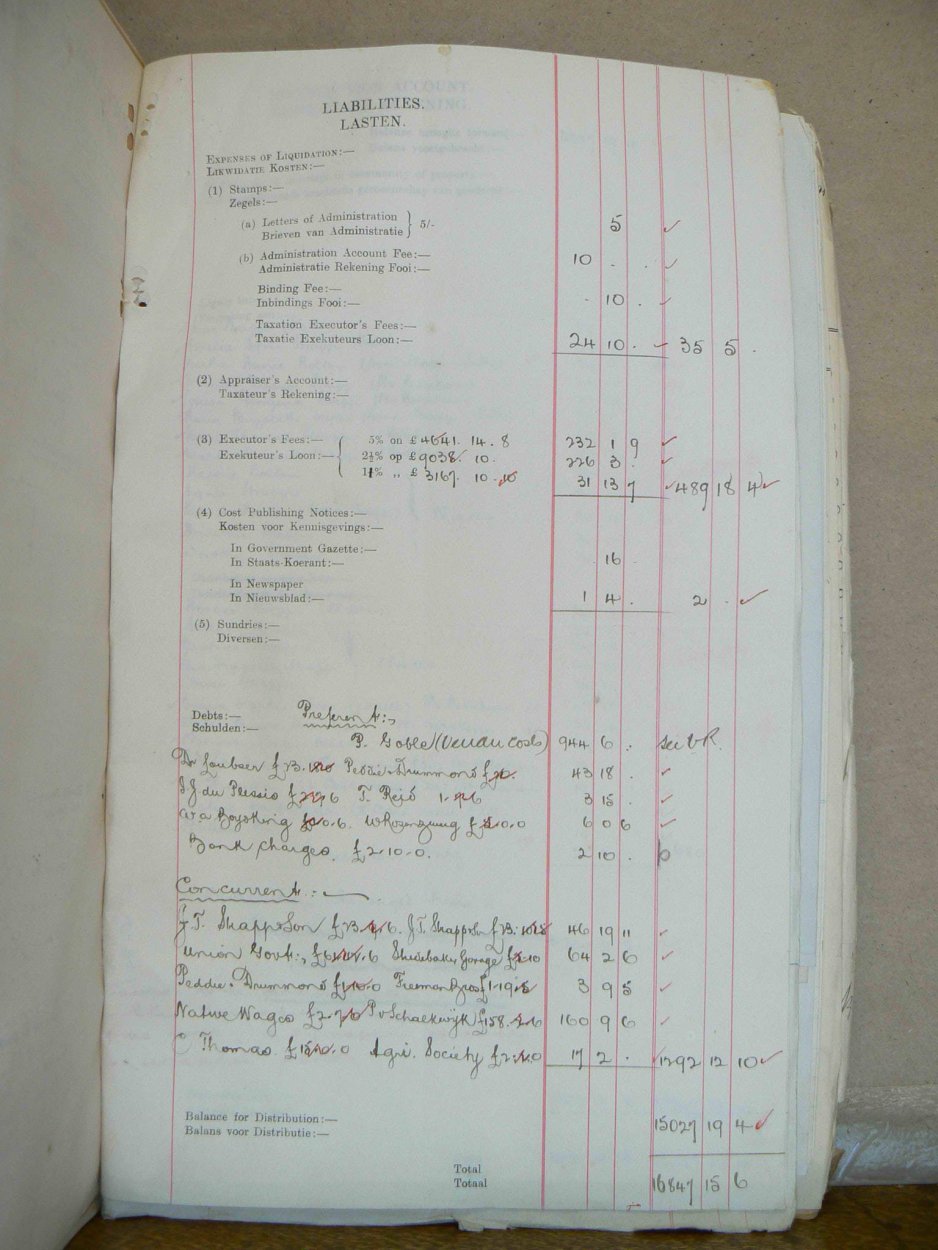 LIABILITIES.
LASTEN.
EXPENSES OF LIQUIDATION:—
LIKWIDATIE KOSTEN:—
(1) Stamps:—
Zegels:—
(a) Letters of Administration
Brieven van Administratie } 5/- 5 ✓
(b) Administration Account Fee:—
Administratie Rekening Fooi:— 10 . . ✓
Binding Fee:—
Inbindings Fooi:— . 10 . ✓
Taxation Executor's Fees:—
Taxatie Exekuteurs Loon:— 24 10 . ✓ 35 5 .
(2) Appraiser's Account:—
Taxateur's Rekening:—
(3) Executor's Fees:— 5% on £4641. 14. 8 232 1 9 ✓
Exekuteur's Loon:— 2½% op £9038. 10. 226 3 . ✓
1% ,, £ 3167. 10 . 10 31 13 7 ✓ 489 18 4 ✓
(4) Cost Publishing Notices:—
Kosten voor Kennisgevings:—
In Government Gazette:—
In Staats-Koerant:— 16
In Newspaper
In Nieuwsblad:— 1 4 . 2 . ✓
(5) Sundries:—
Diversen:—
Debts:— Preferent:-
Schulden:—
P. Goble 944 6 .
Dr Loubser Peddie & Drummond 43 18 . ✓
du Plessis T. Reid 3 15 . ✓
6 0 6 ✓
Bank Charges. £2.10.0. 2 10 .
Concurrent:-
J.T. Sharp & Son J.T. Sharp & Son 46 19 11 ✓
Union Govt: Studebaker Garage 64 2 6 ✓
Peddie & Drummond Freeman Bros 3 9 5 ✓
Native Wages P v Schalkwijk 160 9 6 ✓
C Thomas Agri. Society 17 2 . ✓ 1292 12 10 ✓
Balance for Distribution:—
Balans voor Distributie:— 15027 19 4 ✓
Total
Totaal 16847 15 6